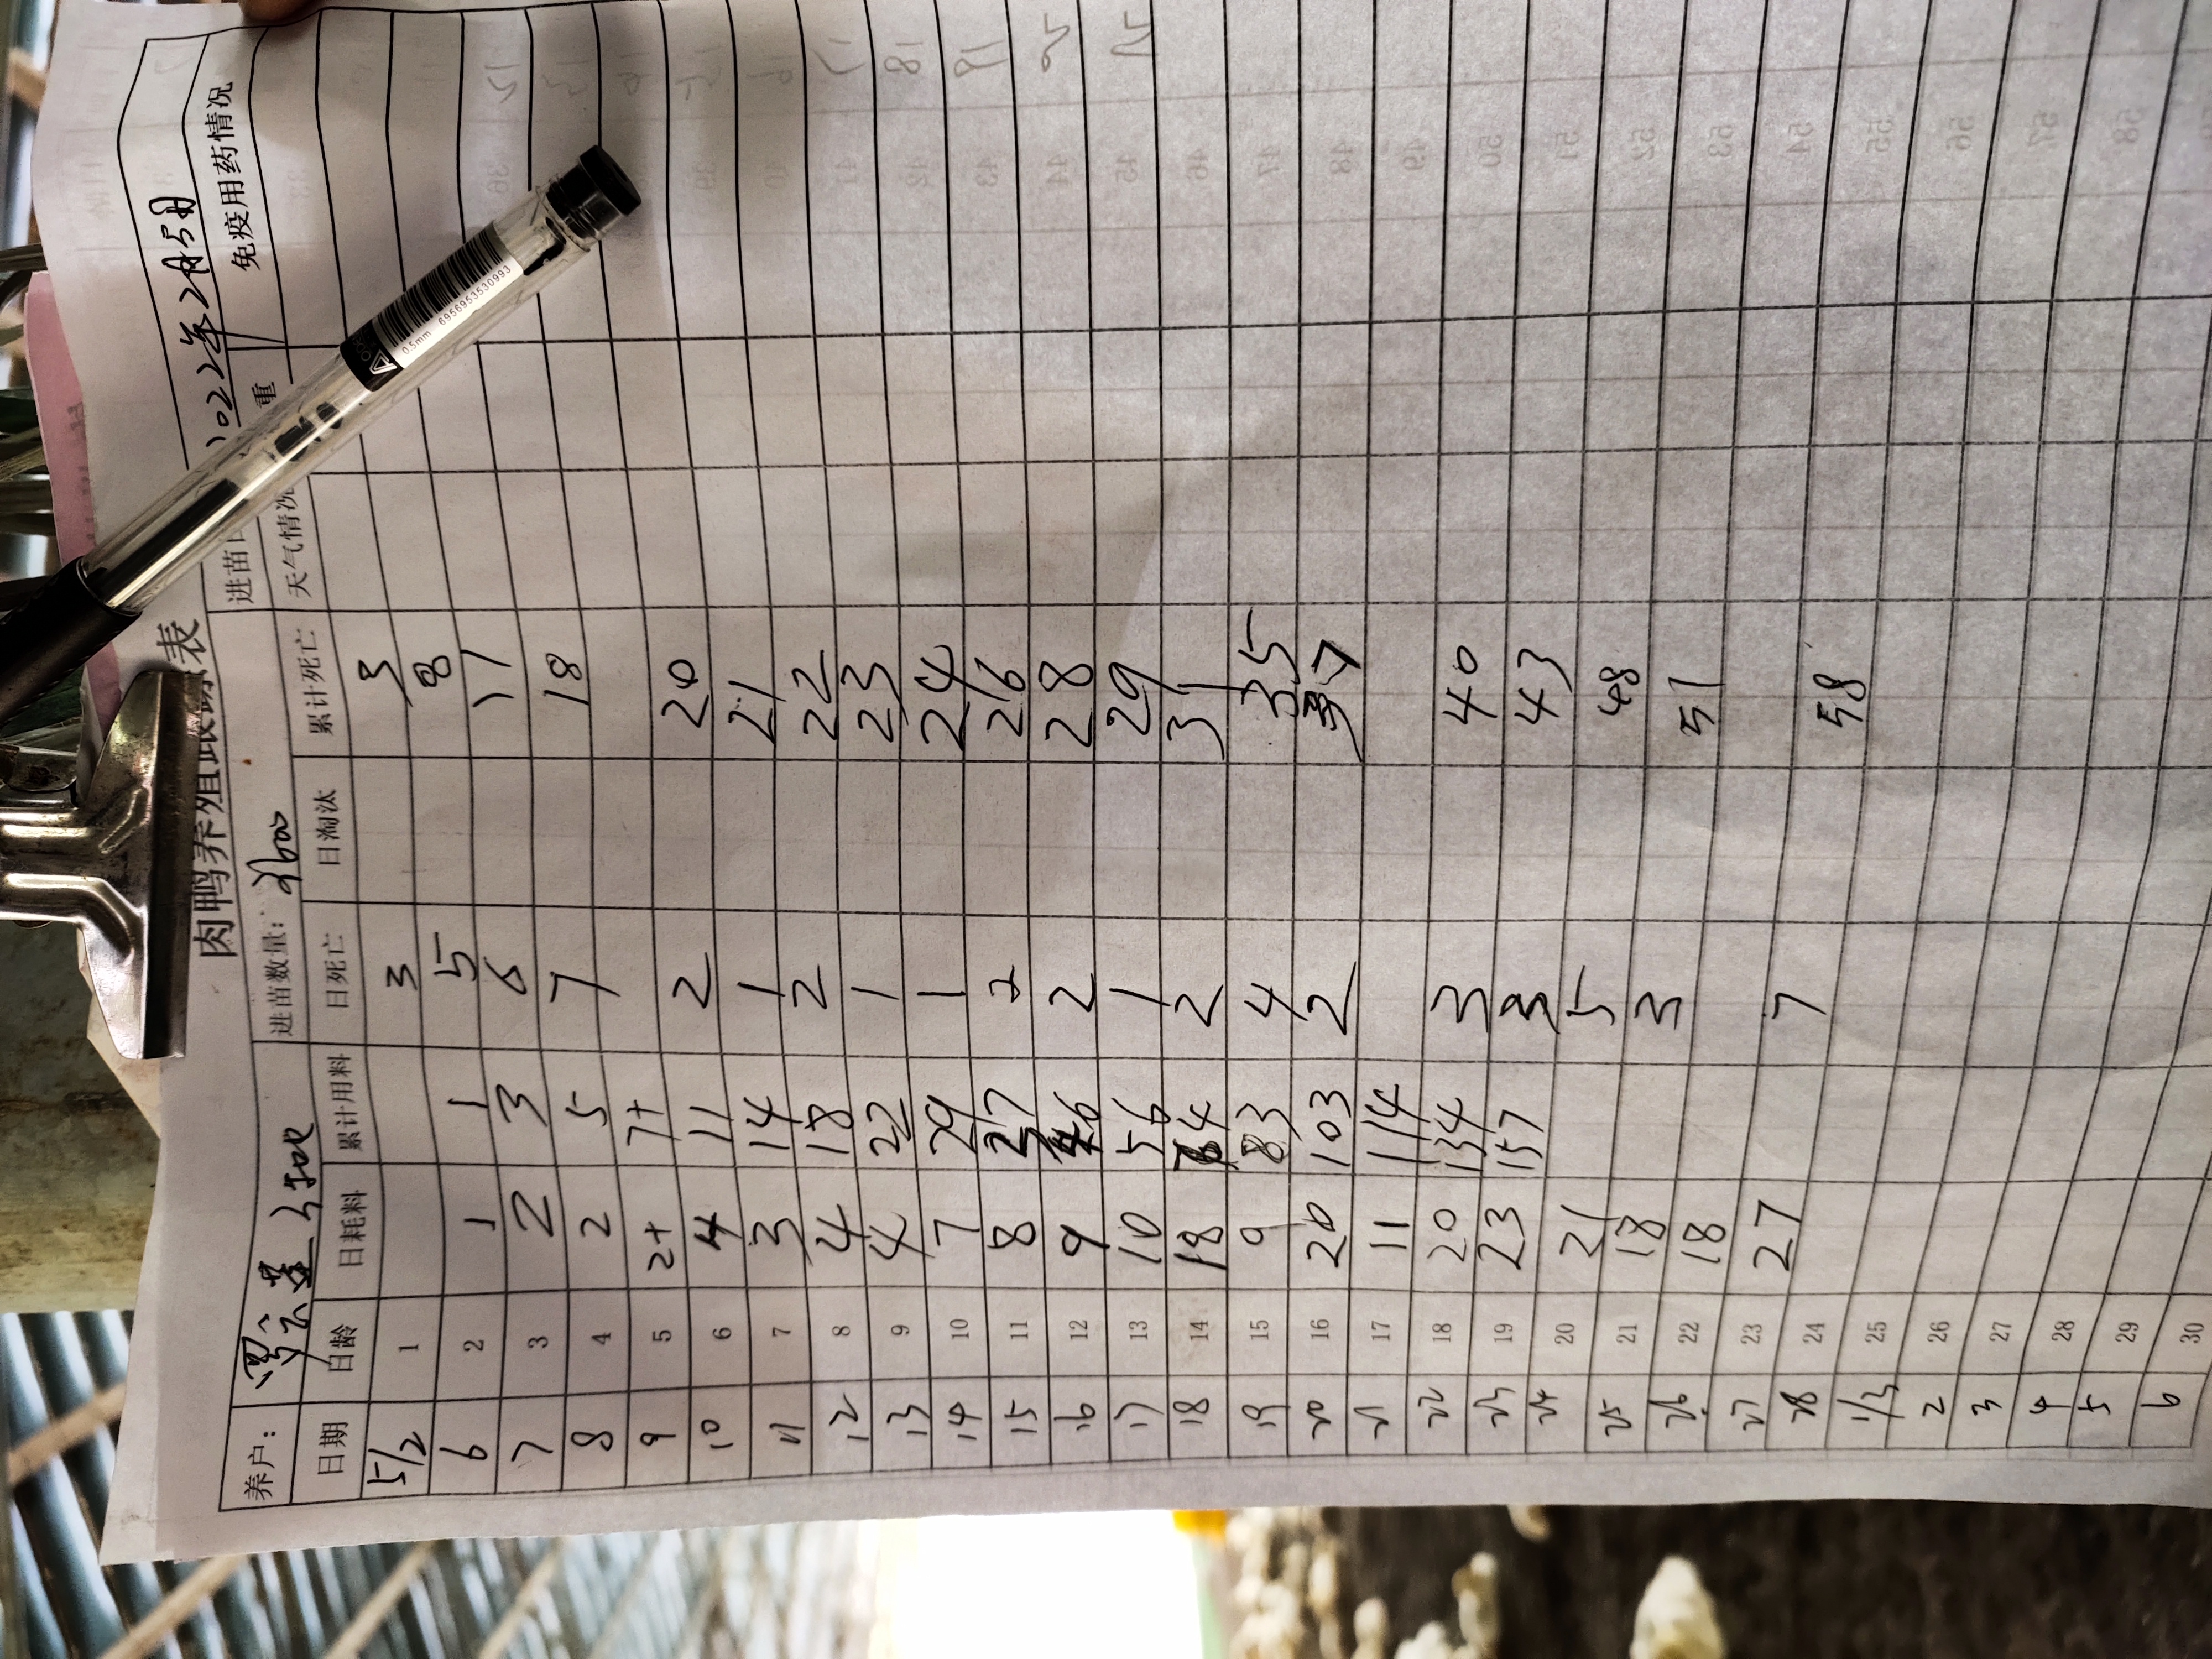 肉鸭养殖跟踪表
养户： 进苗数量： 进苗日 2022年2月5日
日期 日龄 日耗料 累计用料 日死亡 日淘汰 累计死亡 天气情况 重 免疫用药情况
5/2 1 3 3
6 2 1 1 5 8
7 3 2 3 6 11
8 4 2 5 7 18
9 5 2+ 7+
10 6 4 11 2 20
11 7 3 14 1 21
12 8 4 18 2 22
13 9 4 22 1 23
14 10 7 29 1 24
15 11 8 37 2 26
16 12 9 46 2 28
17 13 10 56 1 29
18 14 18 74 2 31
19 15 9 83 4 35
20 16 20 103 2 37
21 17 11 114
22 18 20 134 3 40
23 19 23 157 3 43
24 20 21 5 48
25 21 18 3 51
26 22 18
27 23 27 7 58
28 24
1/3 25
2 26
3 27
4 28
5 29
6 30
0.5mm 6956953530993